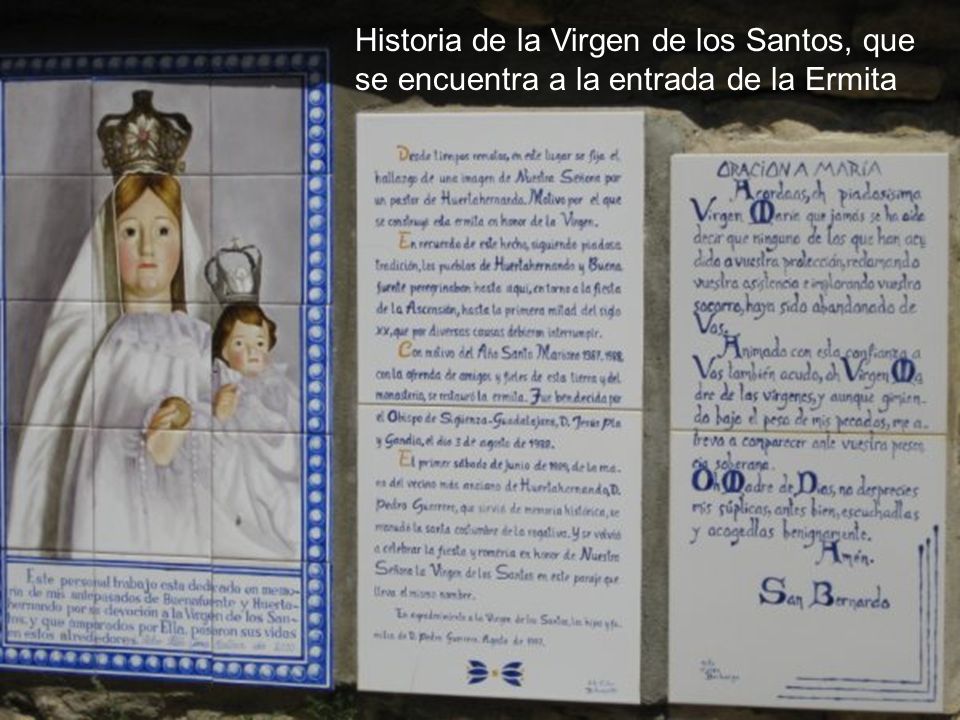 Historia de la Virgen de los Santos, que
se encuentra a la entrada de la Ermita
Desde tiempos remotos, en este lugar se fija el
hallazgo de una imagen de Nuestra Señora por
un pastor de Huertahernando. Motivo por el que
se construyó esta ermita en honor de la Virgen.
En recuerdo de este hecho, siguiendo piadosa
tradición, los pueblos de Huertahernando y Buena
fuente peregrinaban hasta aquí, en torno a la fiesta
de la Ascensión, hasta la primera mitad del siglo
XX, que por diversas causas debieron interrumpir.
Con motivo del Año Santo Mariano 1987-1988,
con la ofrenda de amigos y fieles de esta tierra y del
monasterio, se restauró la ermita. Fue bendecida por
el Obispo de Sigüenza-Guadalajara, D. Jesús Pla
y Gandía, el día 3 de agosto de 1988.
El primer sábado de Junio de 1989, de la ma-
no del vecino más anciano de Huertahernando, D.
Pedro Guerrero, que sirvió de memoria histórica, se
reanudó la santa costumbre de la rogativa. Y se volvió
a celebrar la fiesta y romería en honor de Nuestra
Señora la Virgen de los Santos en este paraje que
lleva el mismo nombre.
En agradecimiento a la Virgen de los Santos, los hijos y fa-
milia de D. Pedro Guerrero. Agosto de
ORACION A MARÍA
Acordaos, oh piadosísima
Virgen María que jamás se ha oído
decir que ninguno de los que han acu
dido a vuestra protección, reclamando
vuestra asistencia e implorando vuestro
socorro, haya sido abandonado de
Vos.
Animado con esta confianza a
Vos también acudo, oh Virgen Ma
dre de las vírgenes, y aunque gimien-
do bajo el peso de mis pecados, me a-
trevo a comparecer ante vuestra presen
cia soberana.
Oh Madre de Dios, no desprecies
mis súplicas, antes bien, escuchadlas
y acogedlas benignamente.
Amén.
San Bernardo
Este personal trabajo esta dedicado en memo-
ria de mis antepasados de Buenafuente y Huerta-
hernando por su devoción a la Virgen de los San-
tos, y que amparados por Ella, pasaron sus vidas
en estos alrededores.